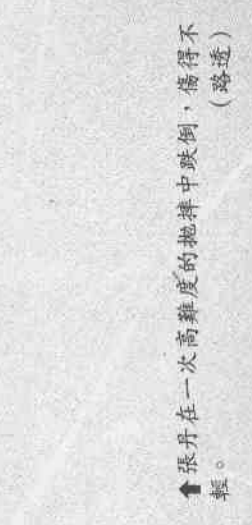 ⬆張丹在一次高難度的拋摔中跌倒，傷得不
輕。（路透）